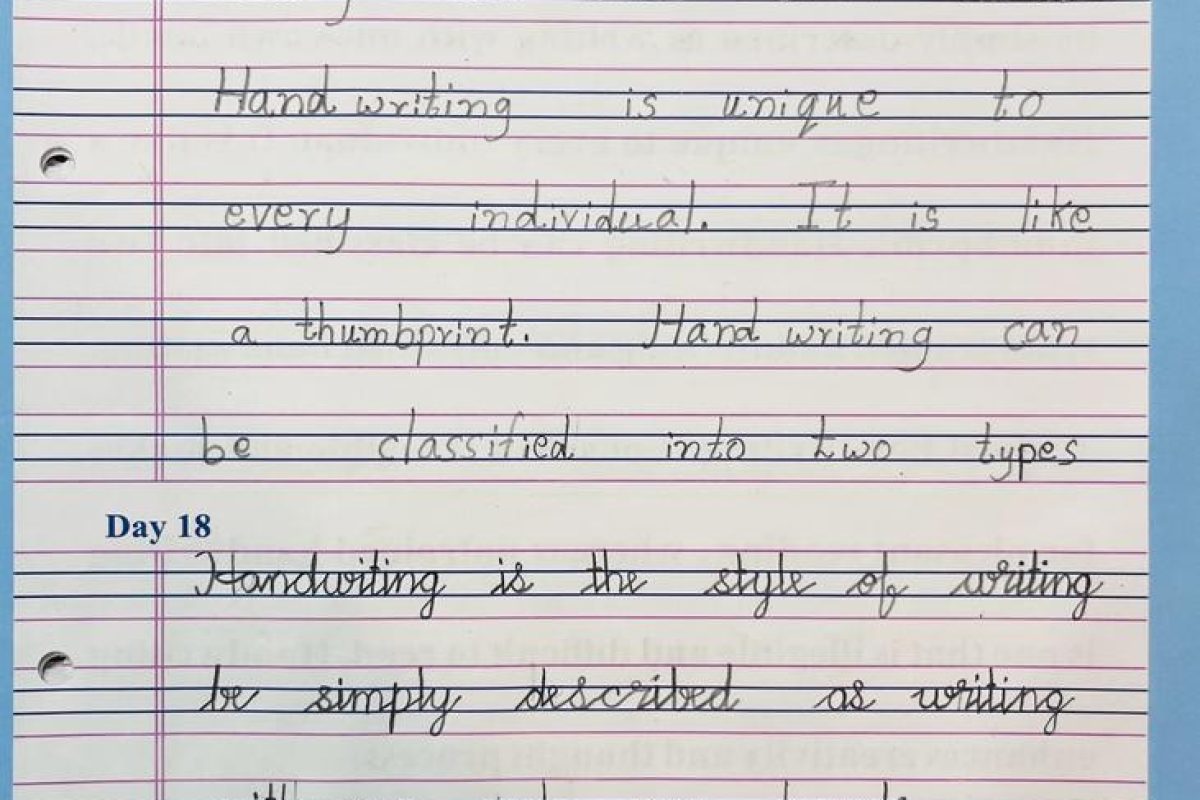 Hand writing is unique to
every individual. It is like
a thumbprint. Hand writing can
be classified into two types
Day 18
Handwiting is the style of writing
be simply described as writing